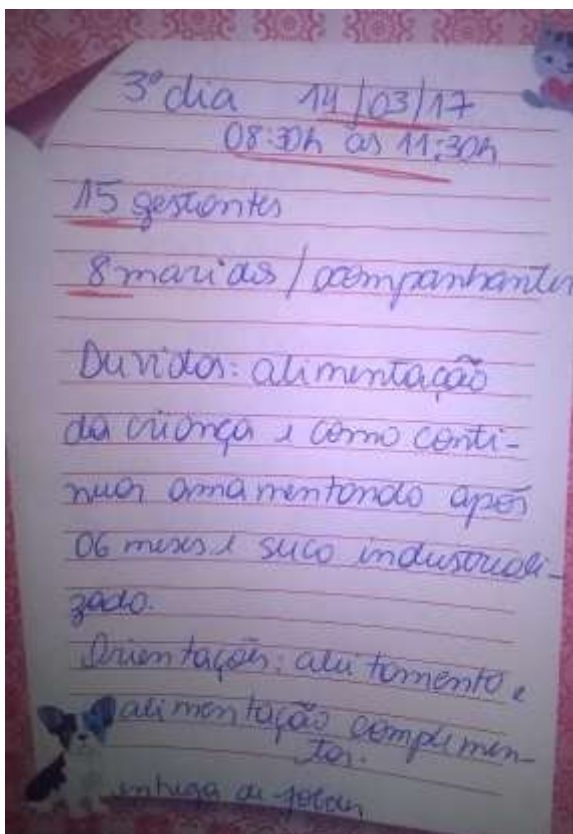 3º dia 14/03/17
08:30h às 11:30h
15 gestantes
8 maridos / acompanhantes
Duvidas: alimentação
da criança e como conti-
nuar amamentando após
06 meses e suco industriali-
zado.
Orientações: aleitamento e
alimentação complemen-
tar.
entrega de